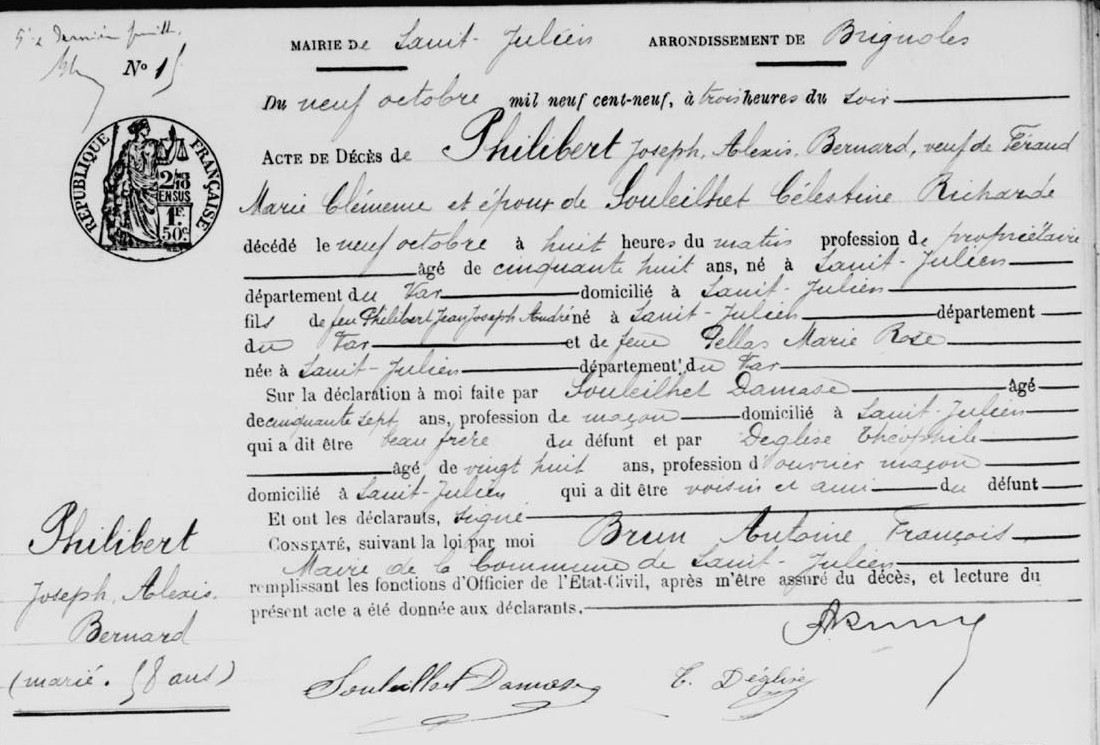 5e & dernier feuillet.
MAIRIE DE Saint-Julien ARRONDISSEMENT DE Brignoles
N° 15
Du neuf octobre mil neuf cent-neuf, à trois heures du soir
ACTE DE DÉCÈS de Philibert Joseph, Alexis, Bernard, veuf de Féraud
Marie Clémence et époux de Souleilhet Célestine Richarde
décédé le neuf octobre à huit heures du matin profession de propriétaire
âgé de cinquante huit ans, né à Saint-Julien
département du Var domicilié à Saint-Julien
fils de feu Philibert Jean Joseph André né à Saint-Julien département
du Var et de feue Pellas Marie Rose
née à Saint-Julien département du Var
Sur la déclaration à moi faite par Souleilhet Damase âgé
de cinquante sept ans, profession de maçon domicilié à Saint-Julien
qui a dit être beau frère du défunt et par Déglise Théophile
âgé de vingt huit ans, profession d'ouvrier maçon
domicilié à Saint-Julien qui a dit être voisin et ami du défunt
Et ont les déclarants, signé
CONSTATÉ, suivant la loi par moi Brun Antoine François
Maire de la Commune de Saint-Julien
remplissant les fonctions d'Officier de l'Etat-Civil, après m'être assuré du décès, et lecture du
présent acte a été donnée aux déclarants.
RÉPUBLIQUE FRANÇAISE
2/10
EN SUS
1F
50c
Philibert
Joseph, Alexis,
Bernard
(marié. 58 ans)
Souleilhet Damase T. Déglise